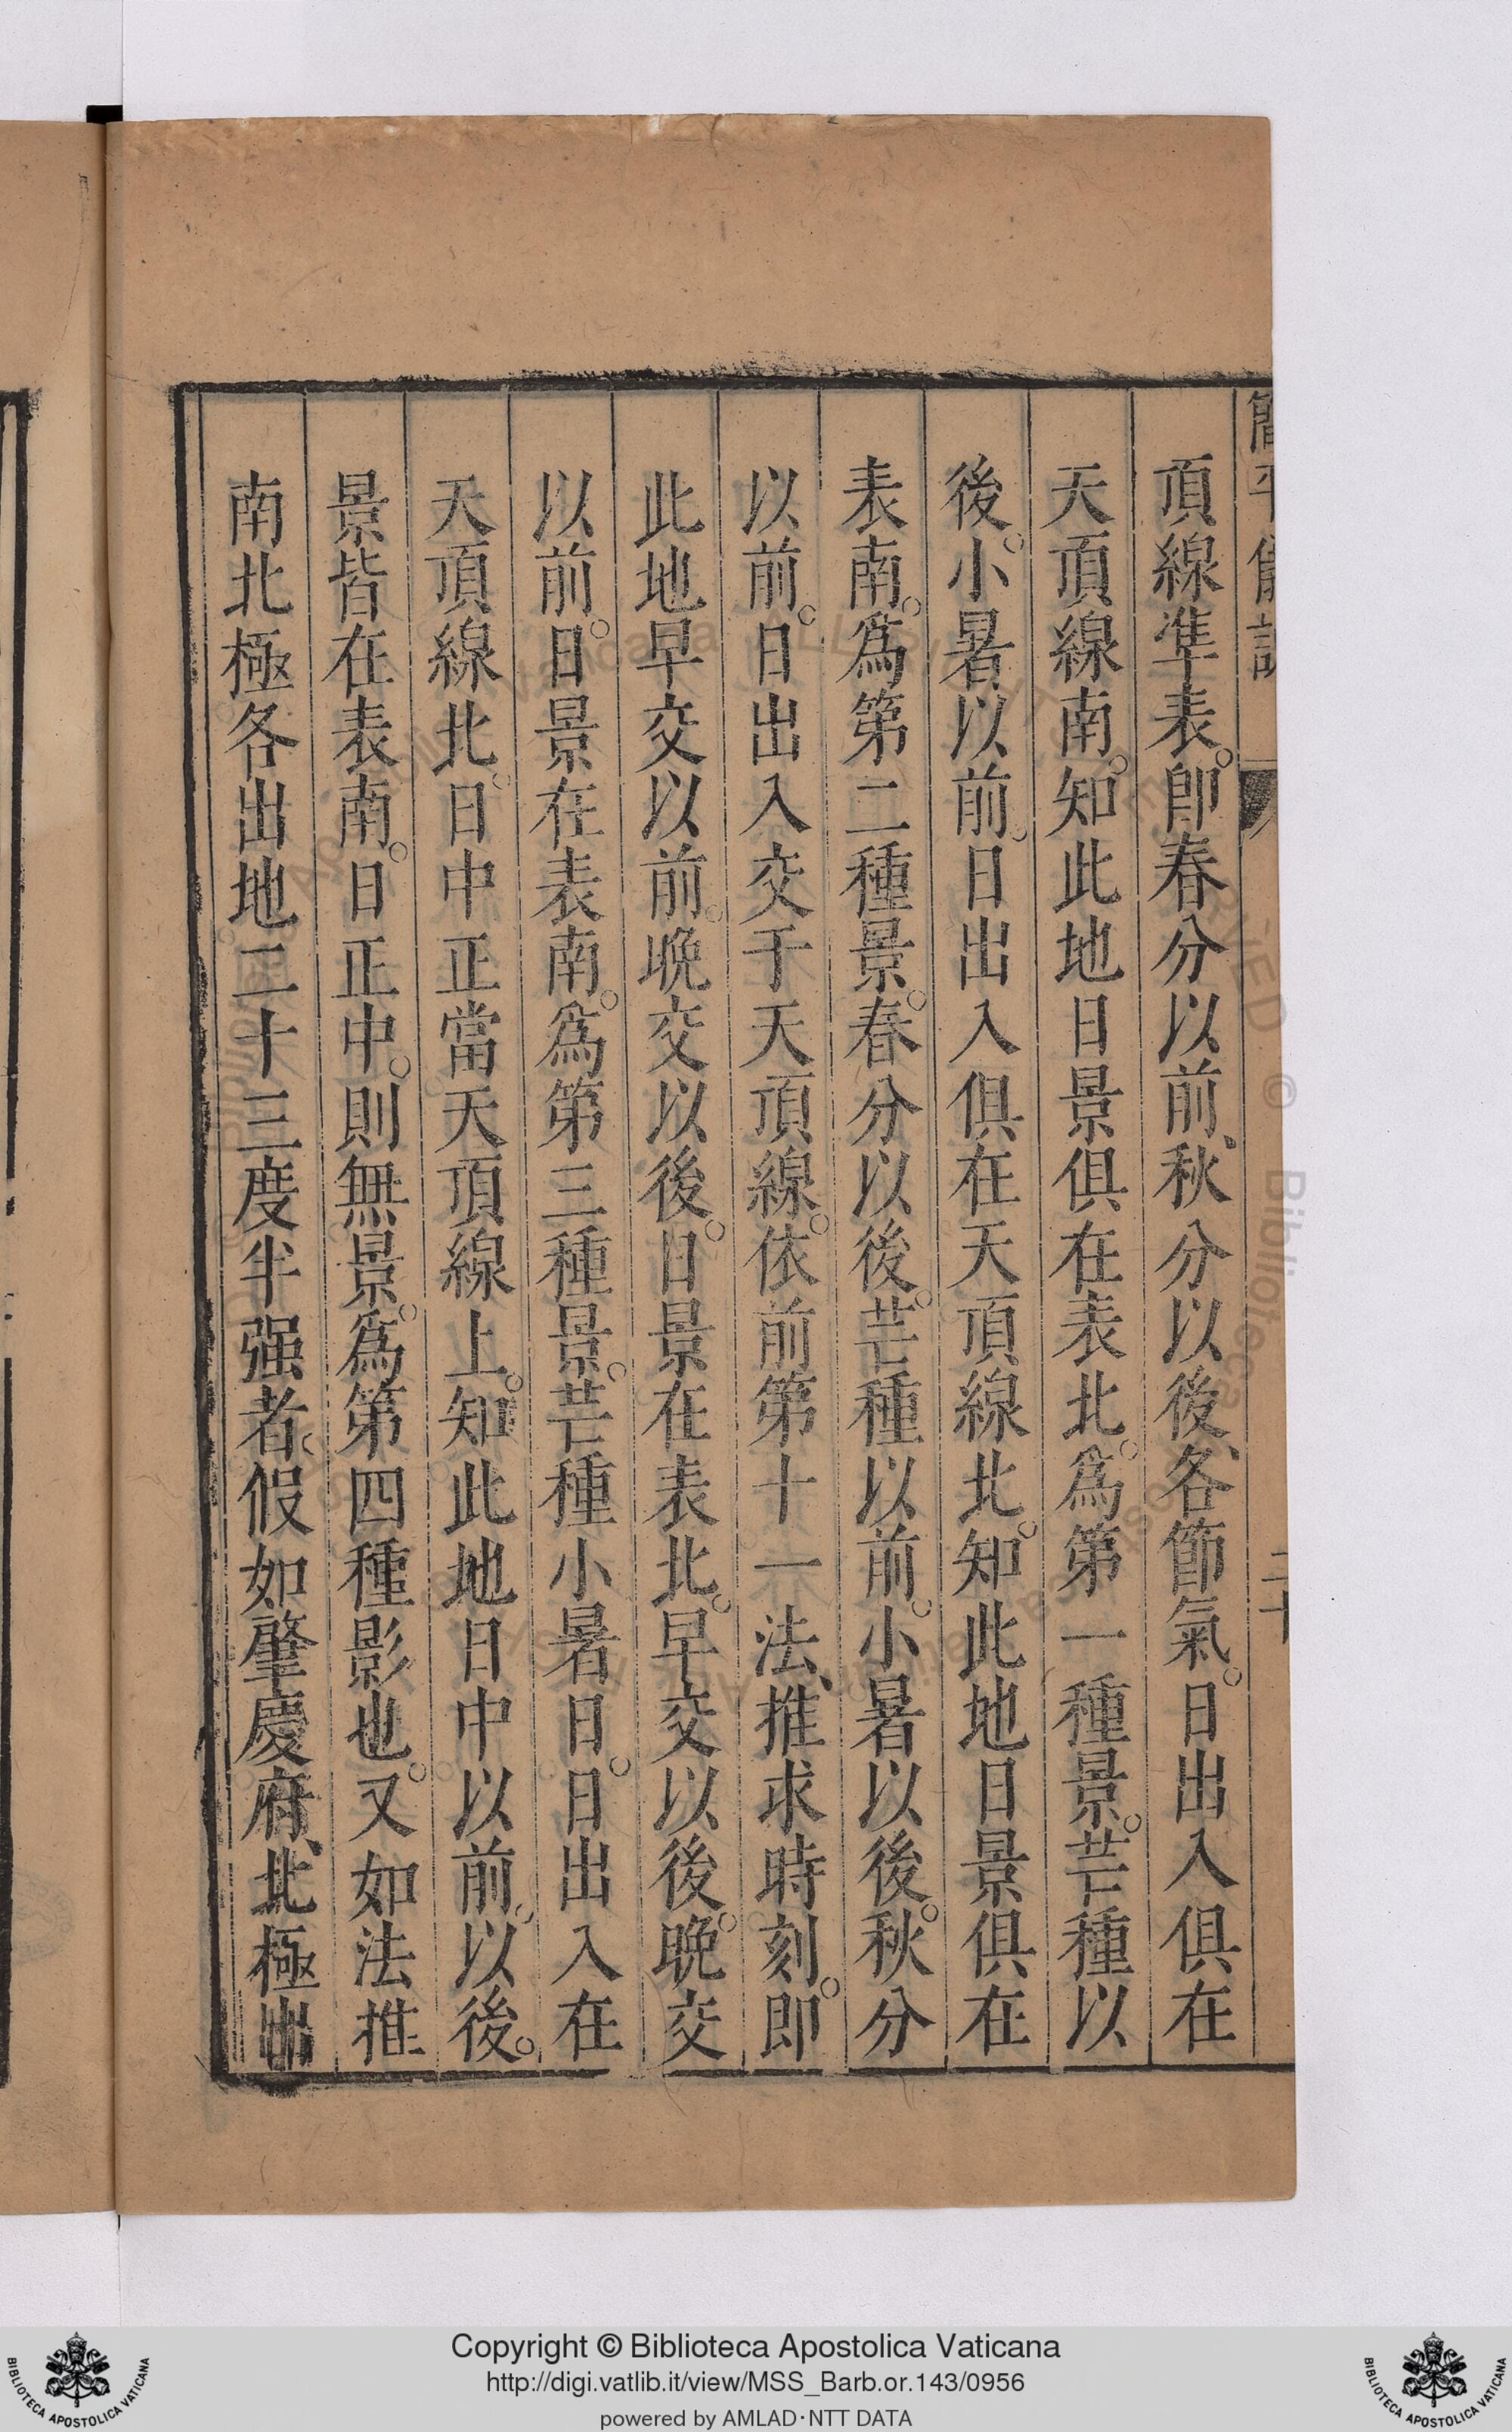 頂線準表。即春分以前、秋分以後、各節氣。日出入俱在
天頂線南。知此地日景俱在表北。爲第一種景。芒種以
後。小暑以前。日出入俱在天頂線北。知此地日景俱在
表南。爲第二種景。春分以後。芒種以前。小暑以後。秋分
以前。日出入交于天頂線。依前第十一法、推求時刻。即
此地早交以前。晚交以後。日景在表北。早交以後。晚交
以前。日景在表南。爲第三種景。芒種小暑日。日出入在
天頂線北。日中正當天頂線上。知此地日中以前。以後。
景皆在表南。日正中。則無景。爲第四種影也。又如法推
南北極各出地二十三度半强者、假如肇慶府、北極出
Copyright © Biblioteca Apostolica Vaticana
http://digi.vatlib.it/view/MSS_Barb.or.143/0956
powered by AMLAD·NTT DATA
BIBLIOTECA APOSTOLICA VATICANA
BIBLIOTECA APOSTOLICA VATICANA